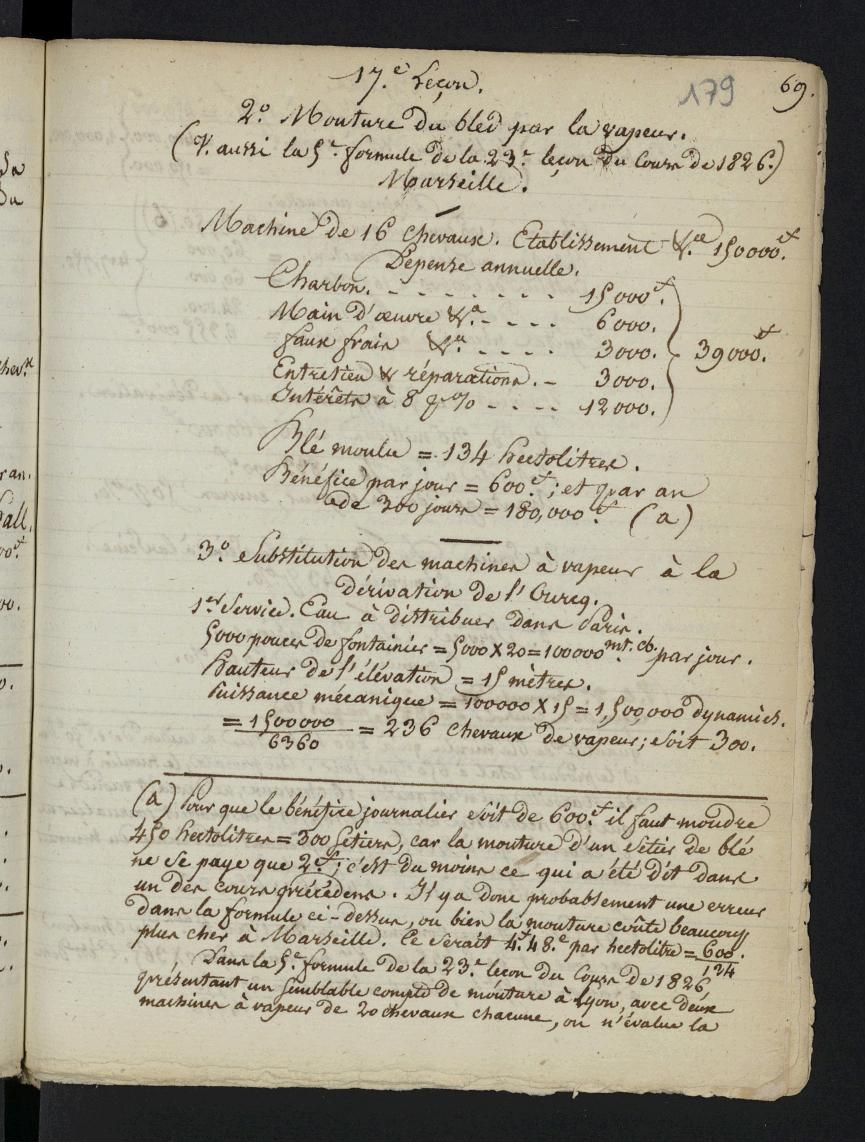 17.e Leçon.
179
69.
2.o Mouture du bled par la vapeur.
(V. aussi la 5.e formule de la 23.e leçon du Cours de 1826.)
Marseille.
Machine de 16 chevaux. Etablissement &.ca 150000.f
Dépense annuelle.
Charbon. - - - - - - - - 15000.f
Main d'œuvre &.a - - - - 6000.
faux frais &.a - - - - 3000. 39000.f
Entretien & réparations. - 3000.
Intérêts à 8 p % - - - - 12000.
Blé moulu = 134 hectolitres.
Bénéfice par jour = 600.f; et par an
de 300 jours = 180,000.f (a)
3.o Substitution des machines à vapeur à la
dérivation de l'Ourcq.
1.er Service. Eau à distribuer dans Paris.
5000 pouces de fontainier = 5000 X 20 = 100000 mt. cb. par jour.
Hauteur de l'élévation = 15 mètres.
Puissance mécanique = 100000 X 15 = 1,500,000 dynamies.
= 1500000 / 6360 = 236 chevaux de vapeur; soit 300.
(a) Pour que le bénéfice journalier soit de 600.f il faut moudre
450 hectolitres = 300 setiers, car la mouture d'un setier de blé
ne se paye que 2.f; c'est du moins ce qui a été dit dans
un des cours précédens. Il y a donc probablement une erreur
dans la formule ci-dessus, ou bien la mouture coûte beaucoup
plus cher à Marseille. Ce serait 4.f 48.c par hectolitre = 600 / 134.
Dans la 5.e formule de la 23.e leçon du Cours de 1826
présentant un semblable compte de mouture à Lyon, avec deux
machines à vapeur de 20 chevaux chacune, on n'évalue la